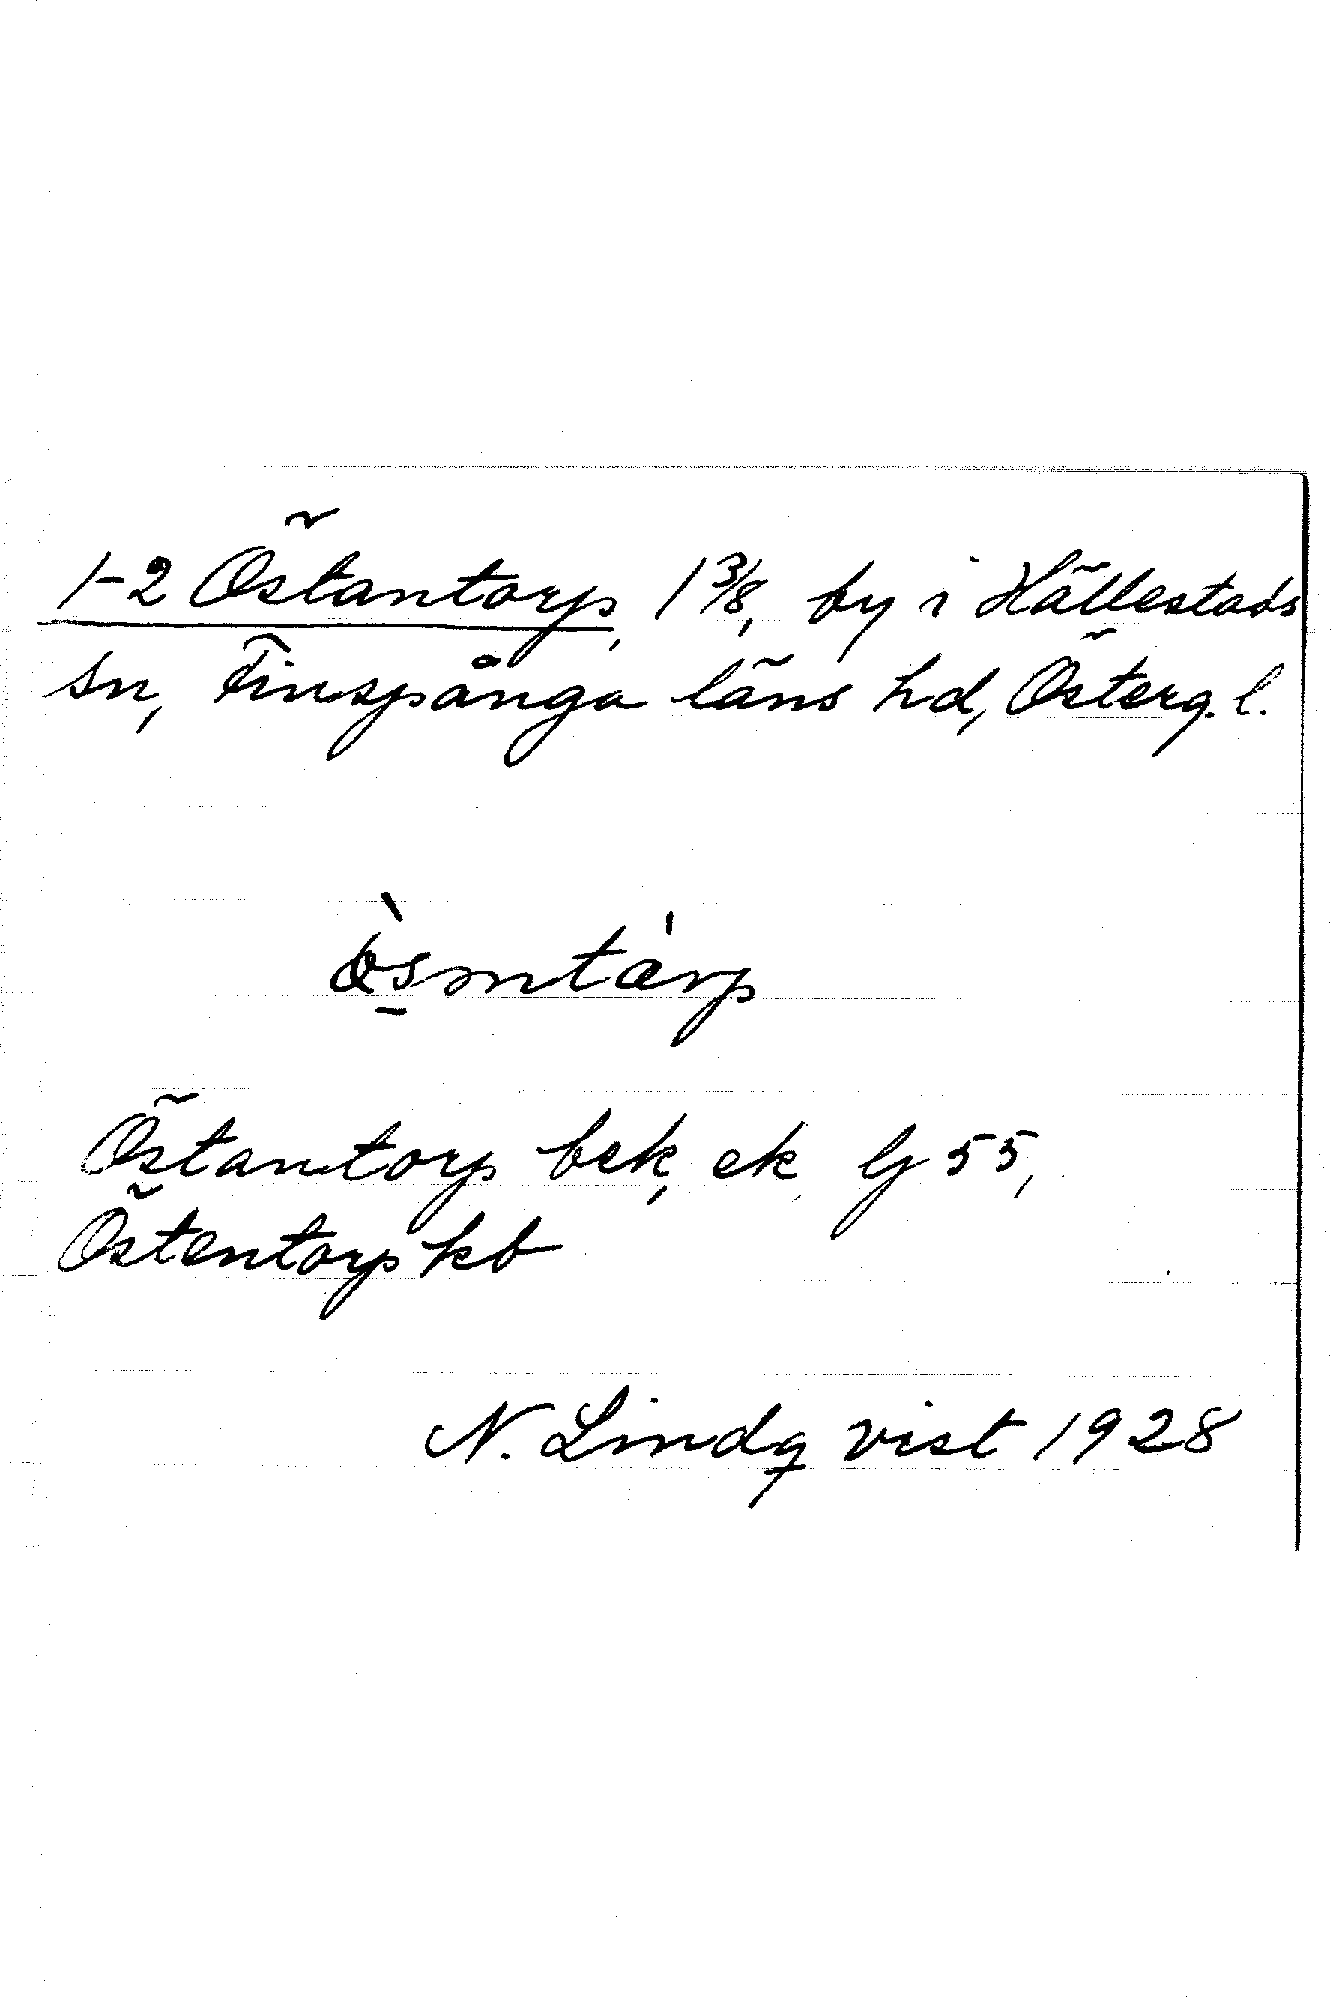 1-2 Östantorp, 1 3/8, by i Hällestads
sn, Finspånga läns hd, Österg. l.
Östantorp bek, ek G 55,
Östentorp kb
N. Lindqvist 1928